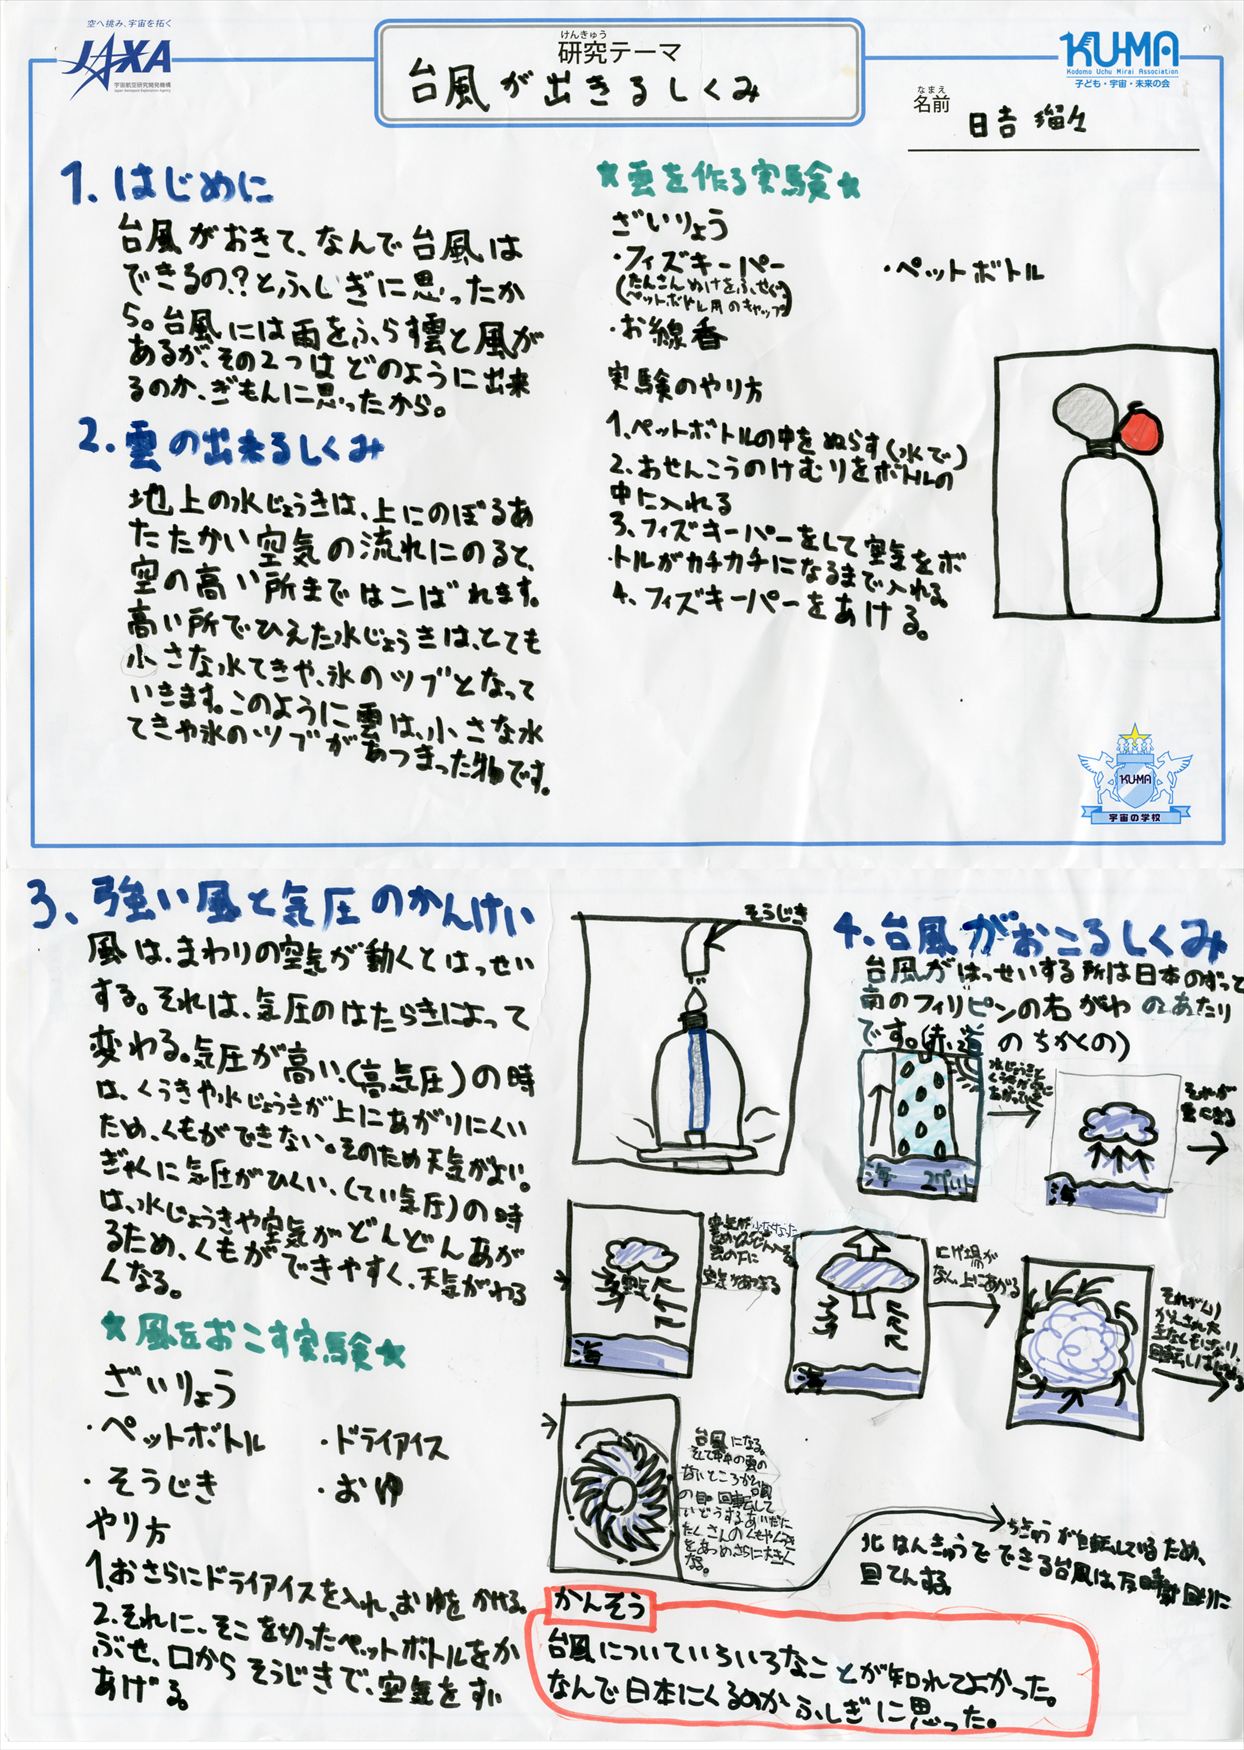 空へ挑み、宇宙を拓く
JAXA
宇宙航空研究開発機構
Japan Aerospace Exploration Agency
けんきゅう
研究テーマ
台風が出きるしくみ
KU-MA
Kodomo Uchu Mirai Association
子ども・宇宙・未来の会
なまえ
名前
日吉 瑠々
1. はじめに
台風がおきて、なんで台風は
できるの?とふしぎに思ったか
ら。台風には雨をふらす雲と風が
あるが、その2つはどのように出来
るのか、ぎもんに思ったから。
2. 雲の出来るしくみ
地上の水じょうきは、上にのぼるあ
たたかい空気の流れにのると、
空の高い所まではこばれます。
高い所でひえた水じょうきは、とても
小さな水てきや、氷のツブとなって
いきます。このように雲は、小さな水
てきや氷のツブがあつまった物です。
★雲を作る実験★
ざいりょう
・フィズキーパー
(たんさんぬけをふせぐ
ペットボトル用のキャップ)
・ペットボトル
・お線香
実験のやり方
1、ペットボトルの中をぬらす(水で)
2. おせんこうのけむりをボトルの
中に入れる
3、フィズキーパーをして空気をボ
トルがカチカチになるまで入れる。
4、フィズキーパーをあける。
KU-MA
宇宙の学校
3、強い風と気圧のかんけい
風は、まわりの空気が動くとはっせい
する。それは、気圧のはたらきによって
変わる。気圧が高い、(高気圧)の時
は、くうきや水じょうきが上にあがりにくい
ため、くもができない。そのため天気がよい。
ぎゃくに気圧がひくい、(てい気圧)の時
は、水じょうきや空気がどんどんあが
るため、くもができやすく、天気がわる
くなる。
★風をおこす実験★
ざいりょう
・ペットボトル ・ドライアイス
・そうじき ・おゆ
やり方
1、おさらにドライアイスを入れ、おゆをかける。
2. それに、そこを切ったペットボトルをか
ぶせ、口からそうじきで、空気をすい
あげる。
そうじき
4、台風がおこるしくみ
台風がはっせいする所は日本のずっと
南のフィリピンの右がわのあたり
です。(赤道のちかくの)
海
海
それが
雲になる
空気が少なくなった
雲の下に
空気があつまる
空気
海
海
にげ場が
なく、上にあがる
それがくり
かえされた
台風になる。
そして中の雲の
ないところが台風
の目。回転して
いどうするあいだに
たくさんのくもやくうき
をあつめさらに大きく
なる。
ちきゅうが自転しているため、
北はんきゅうでできる台風は、反時計回りに
回てんする。
かんそう
台風についていろいろなことが知れてよかった。
なんで日本にくるのかふしぎに思った。